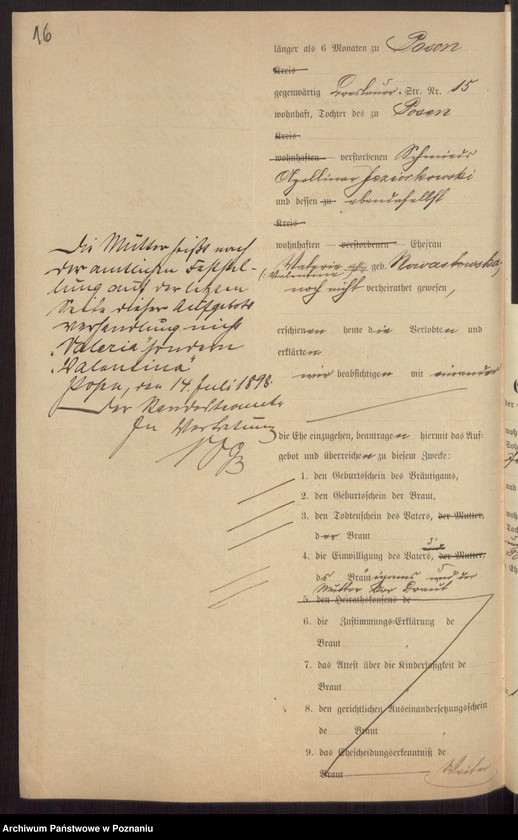 16
länger als 6 Monaten zu Posen
Kreis
gegenwärtig Breslauer-Str. Nr. 15
wohnhaft, Tochter des zu Posen
Kreis
wohnhaften verstorbenen Schmieds
Apollinar Jeziorkowski
und dessen zu ebendaselbst
Kreis
wohnhaften verstorbenen Ehefrau
Valeria geb. Nowakowska,
(: Valentina :)
noch nicht verheirathet gewesen,
erschienen heute die Verlobten und
erklärten
wir beabsichtigen mit einander
die Ehe einzugehen, beantragen hiermit das Auf-
gebot und überreichen zu diesem Zwecke:
1. den Geburtsschein des Bräutigams,
2. den Geburtsschein der Braut,
3. den Todtenschein des Vaters, der Mutter,
der Braut
4. die Einwilligung des Vaters, und der Mutter,
des Bräutigams und der
Mutter der Braut
5. den Heirathskonsens de
6. die Zustimmungs-Erklärung de
Braut
7. das Attest über die Kinderlosigkeit de
Braut
8. den gerichtlichen Auseinandersetzungsschein
de Braut
9. das Ehescheidungserkenntniß de
Braut
Die Mutter heißt nach
der amtlichen Feststel-
lung auf der letzten
Seite dieser Aufgebots
verhandlung nicht
"Valeria" sondern
"Valentina"
Posen, den 14. Juli 1898.
Der Standesbeamte
In Vertretung
Archiwum Państwowe w Poznaniu